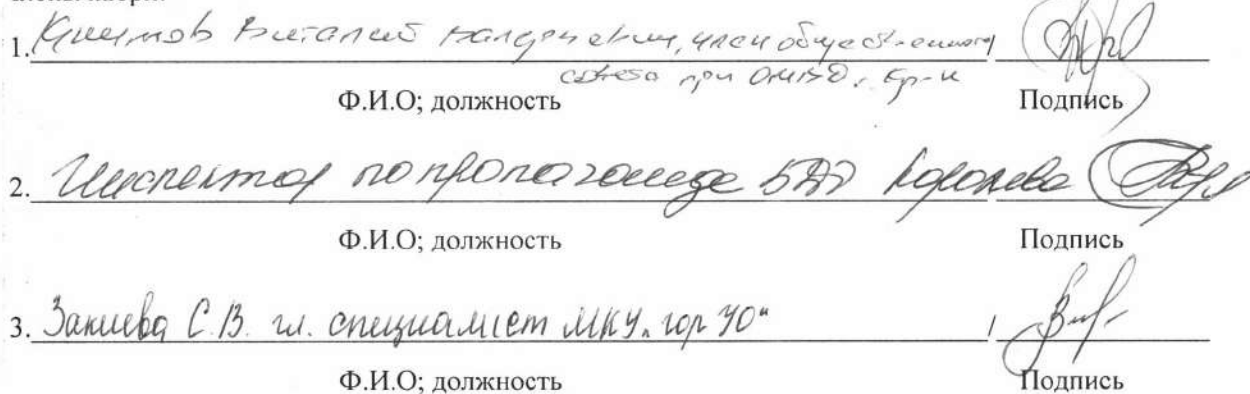 1. Виталий член общественного
совета при г.
Ф.И.О; должность Подпись
2. Инспектор по пропаганде БДД Королева
Ф.И.О; должность Подпись
3. Закиева С.В. гл. специалист МКУ "гор УО"
Ф.И.О; должность Подпись